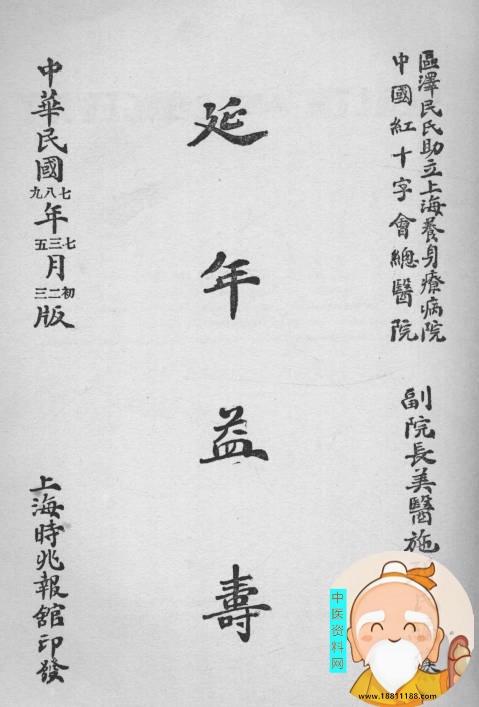 區澤民氏助立上海養身療病院
中國紅十字會總醫院
副院長美醫施
延年益壽
中華民國七八九年七三五月初二三版
上海時兆報館印發
中医资料网
www.18811188.com